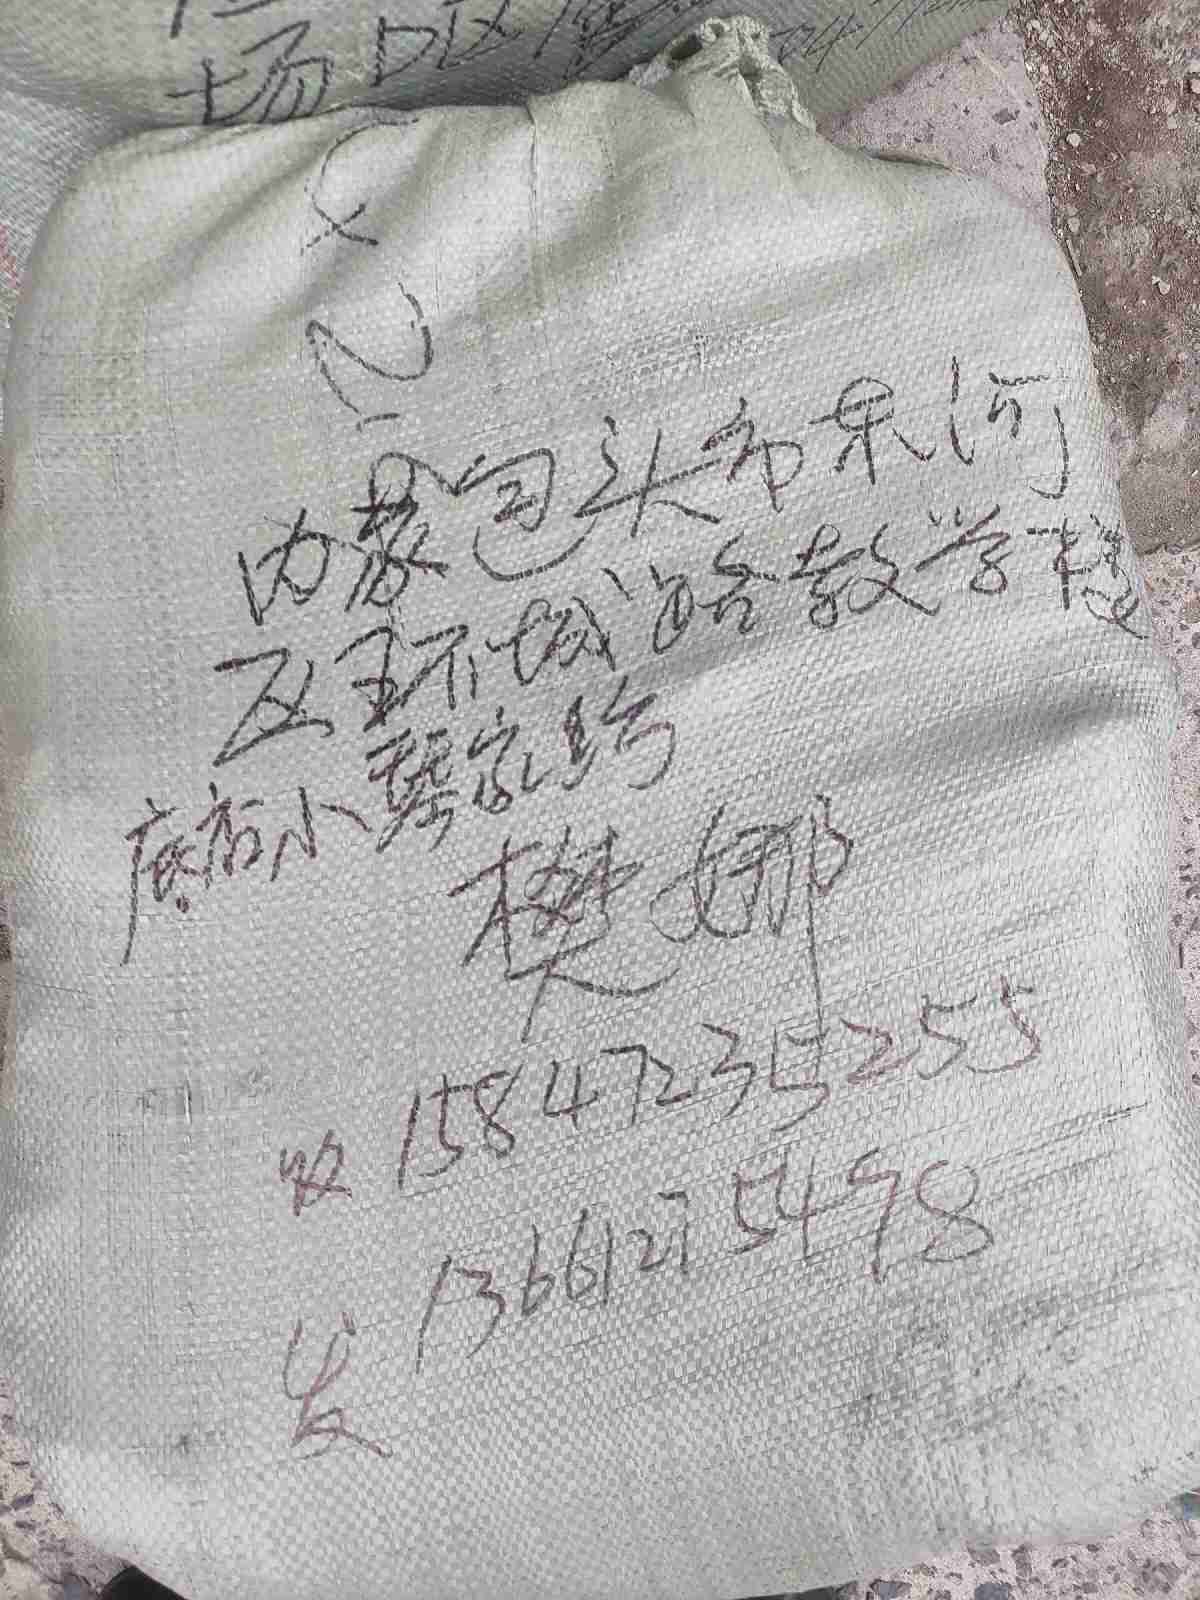 场D区
内蒙包头市东河
区环城路教学楼
底店小龚家纺
樊娜
收 15847235255
发 13661275498